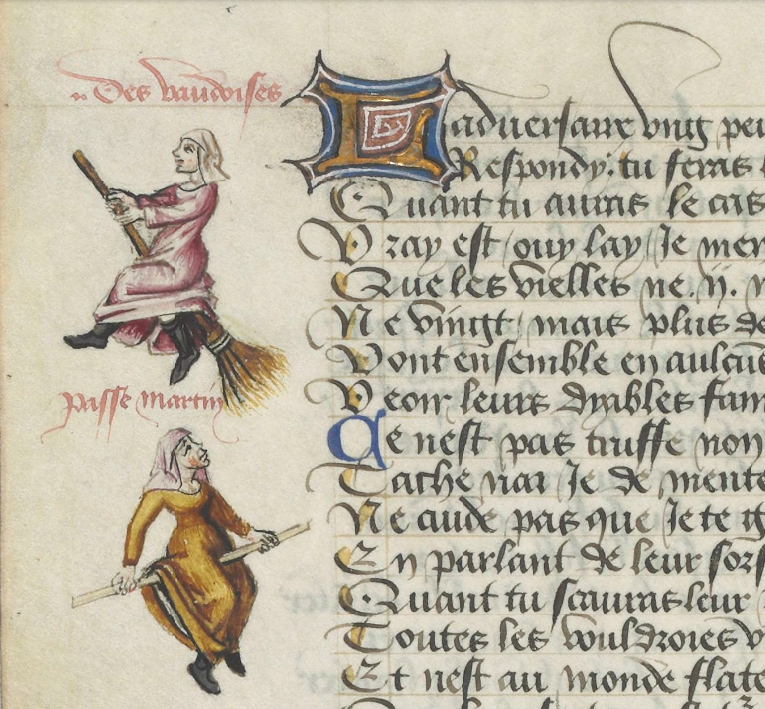 Des vaudoises
passe martin
Ladversaire vng
Respondy. tu feras
Quant tu auras le cas
Vray est ouy lay Je
Que les vielles ne. ij.
Ne vingt mais plus de
Vont ensemble en aulcuns
Veoir leurs dyables
Ce nest pas truffe non
Tache nai Je de
Ne cude pas que Je te
En parlant de leur
Quant tu scauras leur
Toutes les vouldroies
Et nest au monde